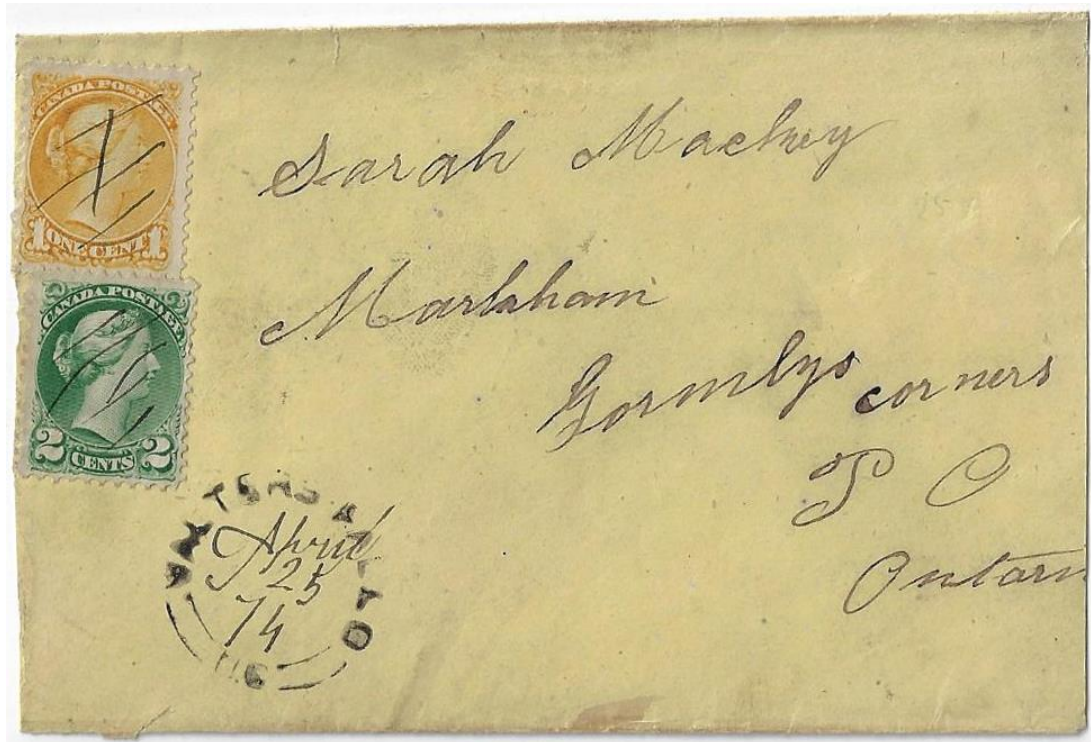 CANADA POSTAGE
1 ONE CENT 1
2 2
CANADA POSTAGE
2 CENTS 2
Sarah Mackey
Markham
Gormlys corners
P O
Ontario
April
25
74